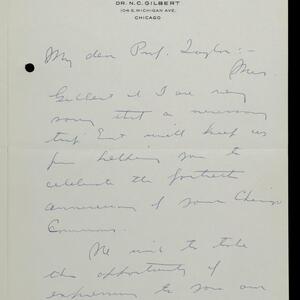 DR. N.C. GILBERT
104 S. MICHIGAN AVE.
CHICAGO
My dear Prof. Taylor:-
Mrs.
Gilbert & I are very
sorry that a necessary
trip East will keep us
from helping you to
celebrate the fortieth
anniversary of your Chicago
Commons.
We wish to take
this opportunity of
expressing to you our